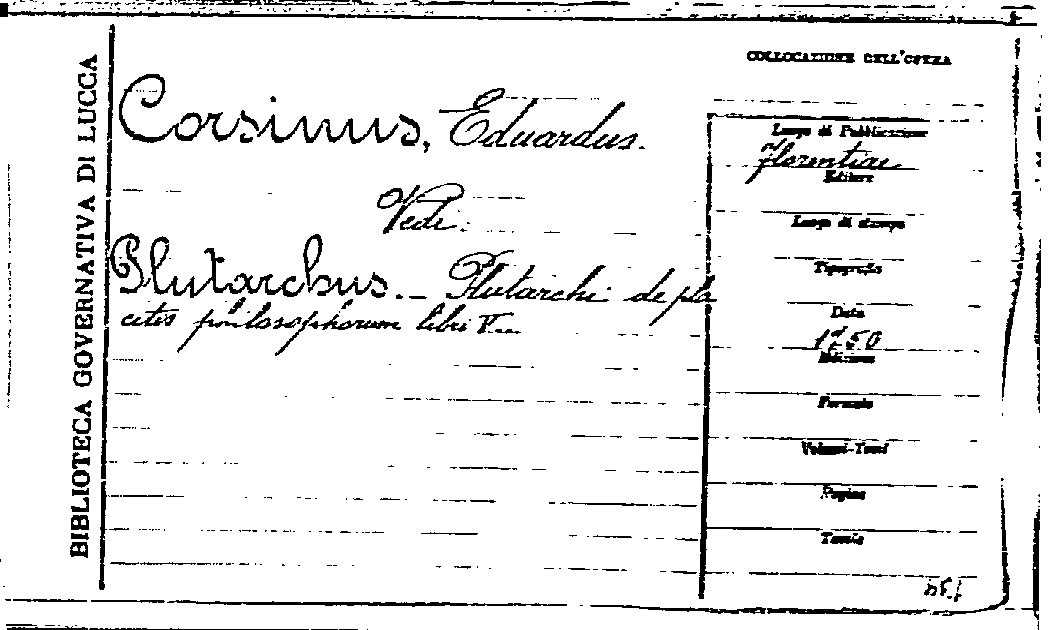 BIBLIOTECA GOVERNATIVA DI LUCCA
Corsinus, Eduardus.
Vedi:
Plutarchus. _ Plutarchi de pla
citis philosophorum libri V._
COLLOCAZIONE DELL'OPERA
Luogo di Pubblicazione
Florentiae
Editore
Luogo di stampa
Tipografia
Data
1750
Edizione
Formato
Volumi-Tomi
Pagine
Tavole